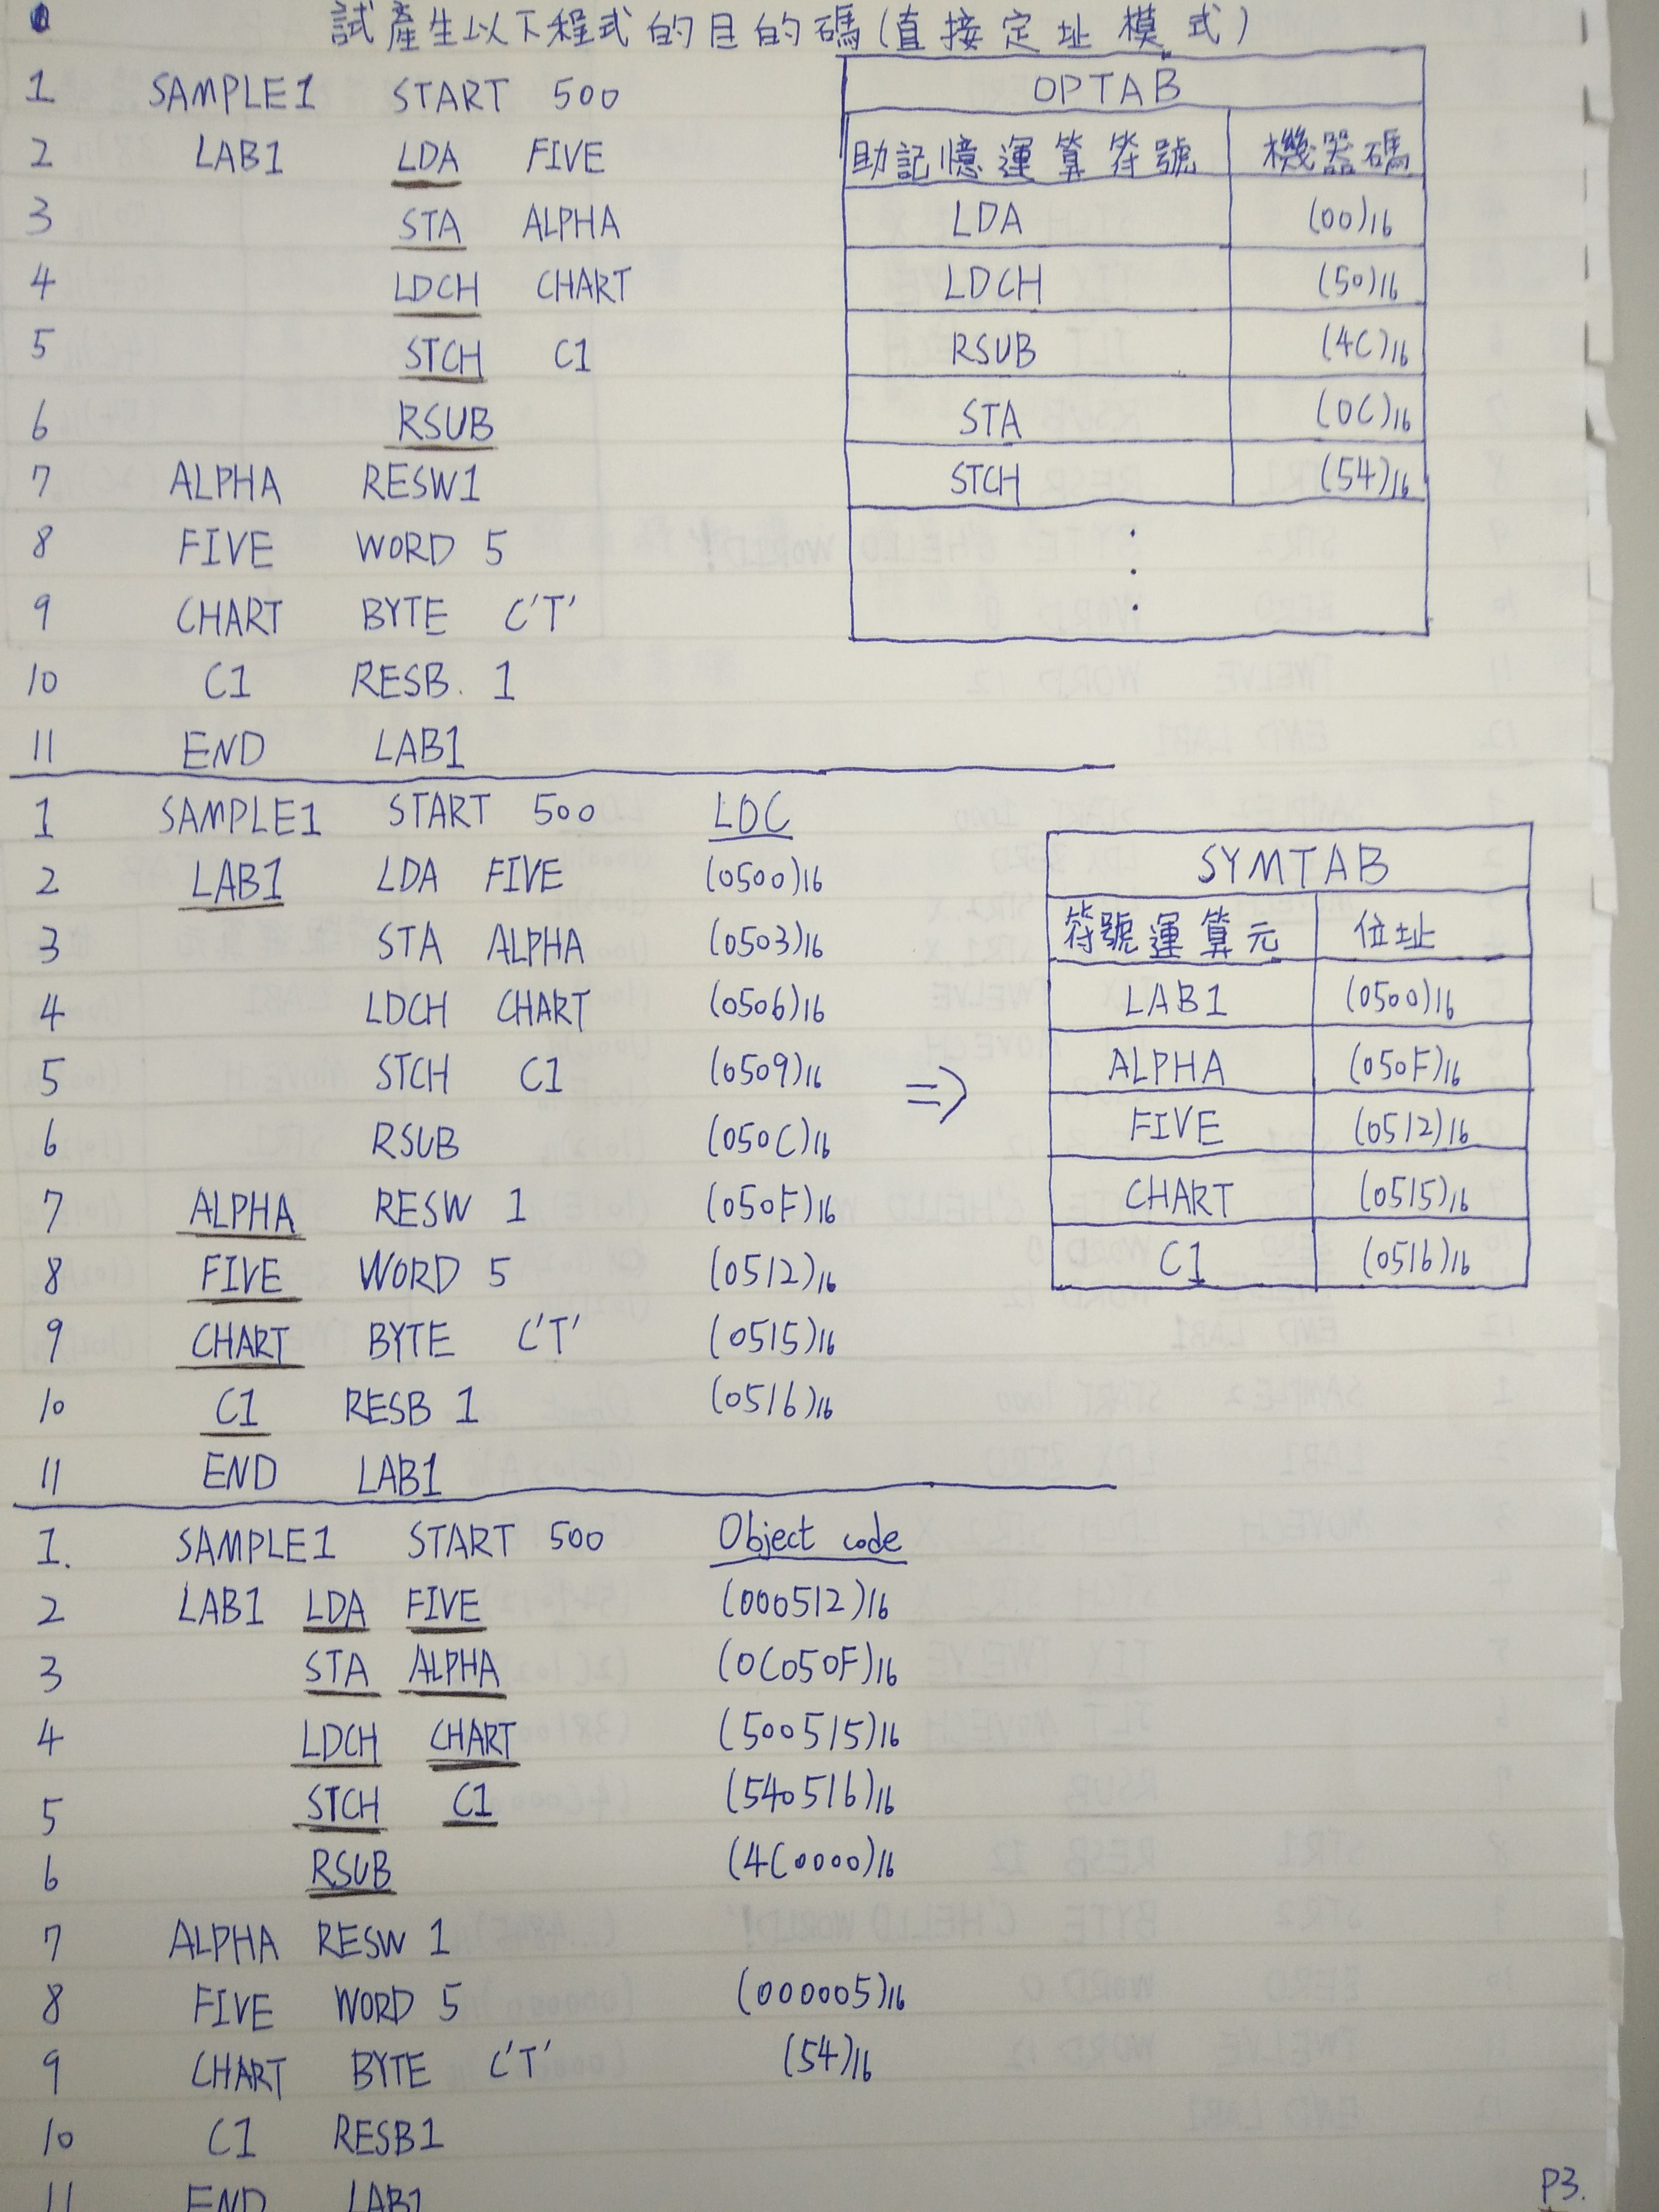 試產生以下程式的目的碼(直接定址模式)
1 SAMPLE1 START 500
2 LAB1 LDA FIVE
3 STA ALPHA
4 LDCH CHART
5 STCH C1
6 RSUB
7 ALPHA RESW1
8 FIVE WORD 5
9 CHART BYTE C'T'
10 C1 RESB. 1
11 END LAB1
OPTAB
助記憶運算符號 機器碼
LDA (00)16
LDCH (50)16
RSUB (4C)16
STA (0C)16
STCH (54)16
1 SAMPLE1 START 500 LOC
2 LAB1 LDA FIVE (0500)16
3 STA ALPHA (0503)16
4 LDCH CHART (0506)16
5 STCH C1 (0509)16
6 RSUB (050C)16
7 ALPHA RESW 1 (050F)16
8 FIVE WORD 5 (0512)16
9 CHART BYTE C'T' (0515)16
10 C1 RESB 1 (0516)16
11 END LAB1
=>
SYMTAB
符號運算元 位址
LAB1 (0500)16
ALPHA (050F)16
FIVE (0512)16
CHART (0515)16
C1 (0516)16
1. SAMPLE1 START 500 Object code
2 LAB1 LDA FIVE (000512)16
3 STA ALPHA (0C050F)16
4 LDCH CHART (500515)16
5 STCH C1 (540516)16
6 RSUB (4C0000)16
7 ALPHA RESW 1
8 FIVE WORD 5 (000005)16
9 CHART BYTE C'T' (54)16
10 C1 RESB1
11 END LAB1
P3.